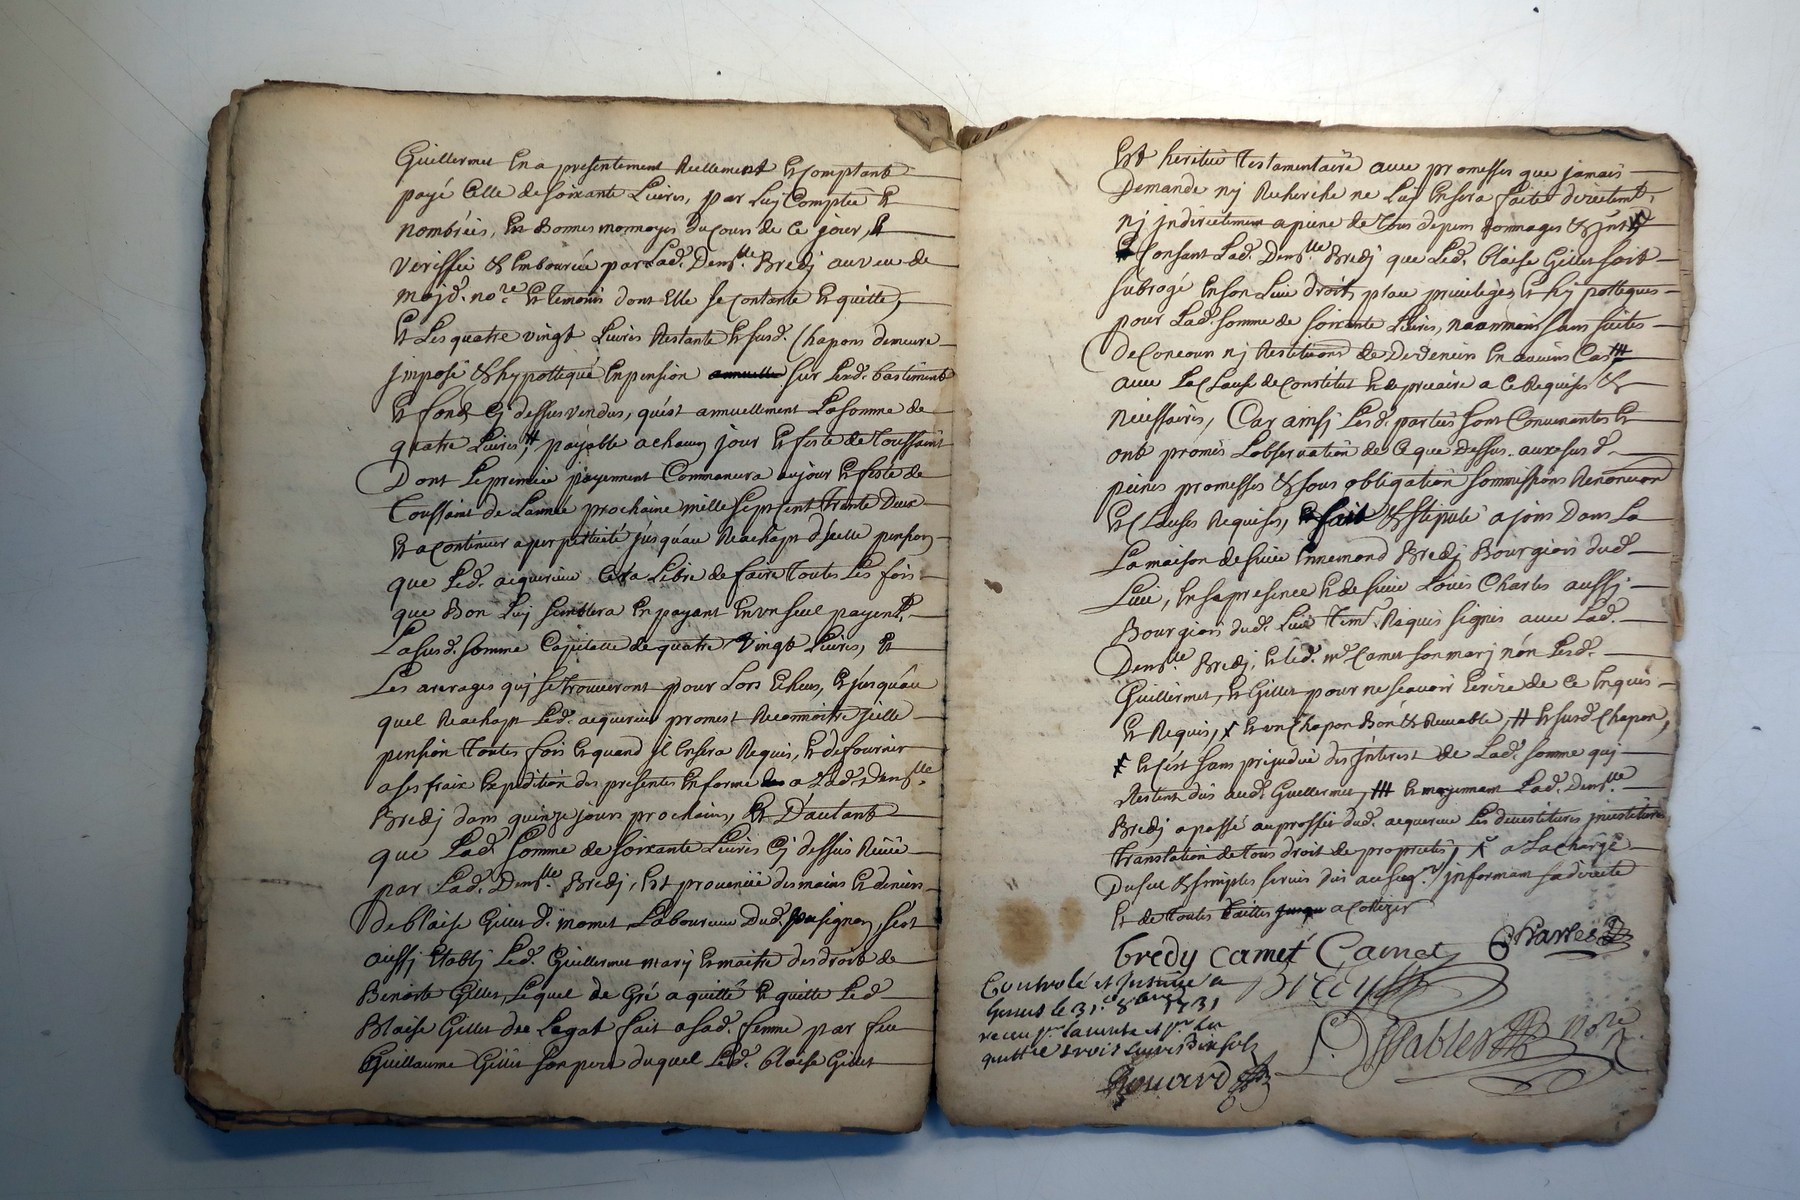 Guillermet En a presentement Reellement Et comptant
payé Celle de soixante Livres, par Luy Comptée Et
nombrées, En Bonnes monnoyes du cours de Ce jour, Et
Veriffiée Et Emboursée par Lad. Demlle. Bredj au veu de
mojd. nore. Et temoins dont Elle se contante Et quitte,
Et Les quatre vingt Livres Restante Et susd. Chapons demeure
jmposé Et hypottequé En pension annuelle sur Lesd. bastiment
Et fonds Cy dessus vendus, qu'est annuellement La somme de
quatre Livres, # payable a chacun jour Et feste de toussaint
Dont Le premier payement Commancera au jour Et feste de
Toussaint de L'année prochaine mille sept sent trante Deux
Et a continuer a perpettuité jusqu'au Reachapt d'jcelle pension
que Led. acquereur Cera Libre de faire toutes Les fois
que Bon Luj semblera En payant En un seul payemt.
La susd. somme Capitalle de quatre Vingt Livres, Et
Les arerages quj se trouveront pour Lors Echeus, Et jusqu'au
quel Reachapt Led. acquereur promest Reconnoitre jcelle
pension toutes fois Et quand jl En sera Requis, Et de fournir
a ses fraix Expedition des presentes En forme a Lad. demlle.
Bredj dans quinze jours prochains, Et D'autant
que Lad. somme de soixante Livres Cj dessus Reüe
par Lad. Demlle. Bredj, Est provenüe des mains Et deniers
de blaise Gillet d. momet Laboureur Dud. pusignan, s'est
aussj Etablj Led. Guillermet marj Et maitre des droits de
Benoite Gillet, Lequel de Gré a quitté Et quitte Led
Blaise Gillet du Legat fait a sad. femme par feu
Guillaume Gillet son pere duquel Led. blaise Gillet
Est heritier testamentaire avec promesses que jamais
Demande nj Recherche ne Luj En sera faite directemt.
nj jndirectement a peine de tous depens dommages Et jnts
Consant Lad. Demlle. Bredj que Led. blaise Gillet soit
subrogé En son Lieu droit, place privileges Et hypotteques
pour Lad. somme de soixante Livres, neanmoins sans suittes
De Concours nj Restitutions de Desdeniers En aucuns Cas ###
avec La Clause de Constitut Et de precaire a Ce Requises Et
necessaires, Car ainsj Lesd. parties sont Convenantes Et
ont promis L'observation de Ce que Dessus aux susd.
peines promesses Et sous obligation sommissions Renoncion
Et Clauses Requises, fait Et stipulé a jons Dans La
La maison de sieur Ennemond Bredj Bourgeois dud.
Lieu, En sa presence Et de sieur Loüis Charles aussj
Bourgeois dud. Lieu Tem. Requis signés avec Lad.
Demlle. Bredj, Et led. sr. Camet son marj non Lesd.
Guillermet, Et Gillet pour ne scavoir Ecrire de Ce Enquis
Et Requis, Et un Chapon Bon Et Recevable, # Et susd. Chapon,
Et C'est sans prejudice des jnterest de Lad. somme quj
Restent dus aud. Guillermet, ### Et moyennant Lad. Demlle.
Bredj a passé au proffit dud. acquereur Les devestitures jnvestitures
translation de tous droit de proprietés, a La charge
Du seul Et simples servis dus au seigr. jnformam sa directe
Et de toutes tailles a Cottizer
bredy camet Camet Charles
Controlé et Insinué a Bredy
le 31e. 8bre 1731
receu pr. la vente et pr. la
quittce trois livres dix sols
Rouard Desablés Nore.